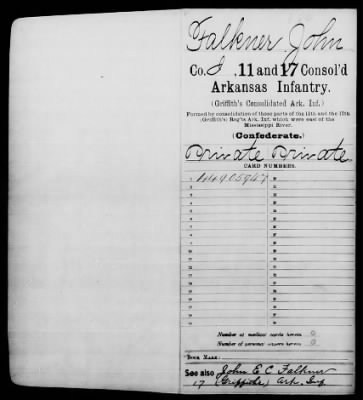 Falkner, John
Co. I, 11 and 17 Consol'd
Arkansas Infantry.
(Griffith's Consolidated Ark. Inf.)
Formed by consolidation of those parts of the 11th and the 17th
(Griffith's) Reg'ts Ark. Inf. which were east of the
Mississippi River.
(Confederate.)
Private Private
CARD NUMBERS.
1 44905947
Number of medical cards herein 0
Number of personal papers herein 0
BOOK MARK:
See also John E C Falkner
17 (Griffiths) Ark. Inf.